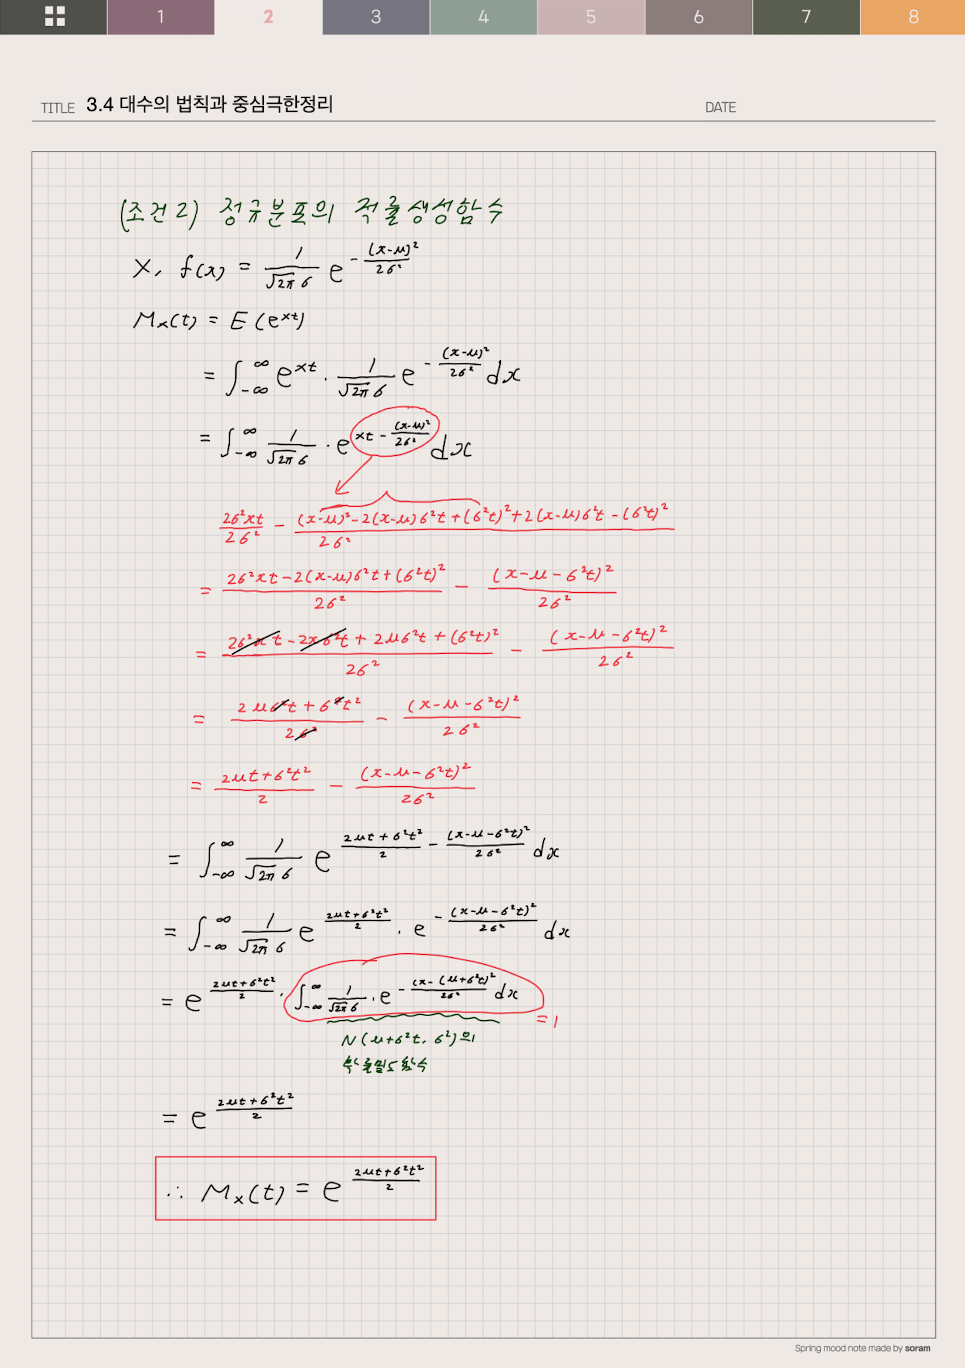 1 2 3 4 5 6 7 8
TITLE 3.4 대수의 법칙과 중심극한정리 DATE
(조건2) 정규분포의 적률생성함수
X, f(x) = 1/(√2π σ) e^(-(x-μ)²/2σ²)
Mx(t) = E(e^xt)
= ∫_-∞^∞ e^xt · 1/(√2π σ) e^(-(x-μ)²/2σ²) dx
= ∫_-∞^∞ 1/(√2π σ) · e^(xt - (x-μ)²/2σ²) dx
2σ²xt/2σ² - ((x-μ)²-2(x-μ)σ²t+(σ²t)²+2(x-μ)σ²t-(σ²t)²)/2σ²
= (2σ²xt-2(x-μ)σ²t+(σ²t)²)/2σ² - (x-μ-σ²t)²/2σ²
= (2σ²xt-2xσ²t+2μσ²t+(σ²t)²)/2σ² - (x-μ-σ²t)²/2σ²
= (2μσ²t+σ⁴t²)/2σ² - (x-μ-σ²t)²/2σ²
= (2μt+σ²t²)/2 - (x-μ-σ²t)²/2σ²
= ∫_-∞^∞ 1/(√2π σ) e^((2μt+σ²t²)/2 - (x-μ-σ²t)²/2σ²) dx
= ∫_-∞^∞ 1/(√2π σ) e^((2μt+σ²t²)/2) · e^(-(x-μ-σ²t)²/2σ²) dx
= e^((2μt+σ²t²)/2) · ∫_-∞^∞ 1/(√2π σ) · e^(-(x-(μ+σ²t)²/2σ²) dx = 1
N(μ+σ²t, σ²)의
확률밀도함수
= e^((2μt+σ²t²)/2)
∴ Mx(t) = e^((2μt+σ²t²)/2)
Spring mood note made by soram